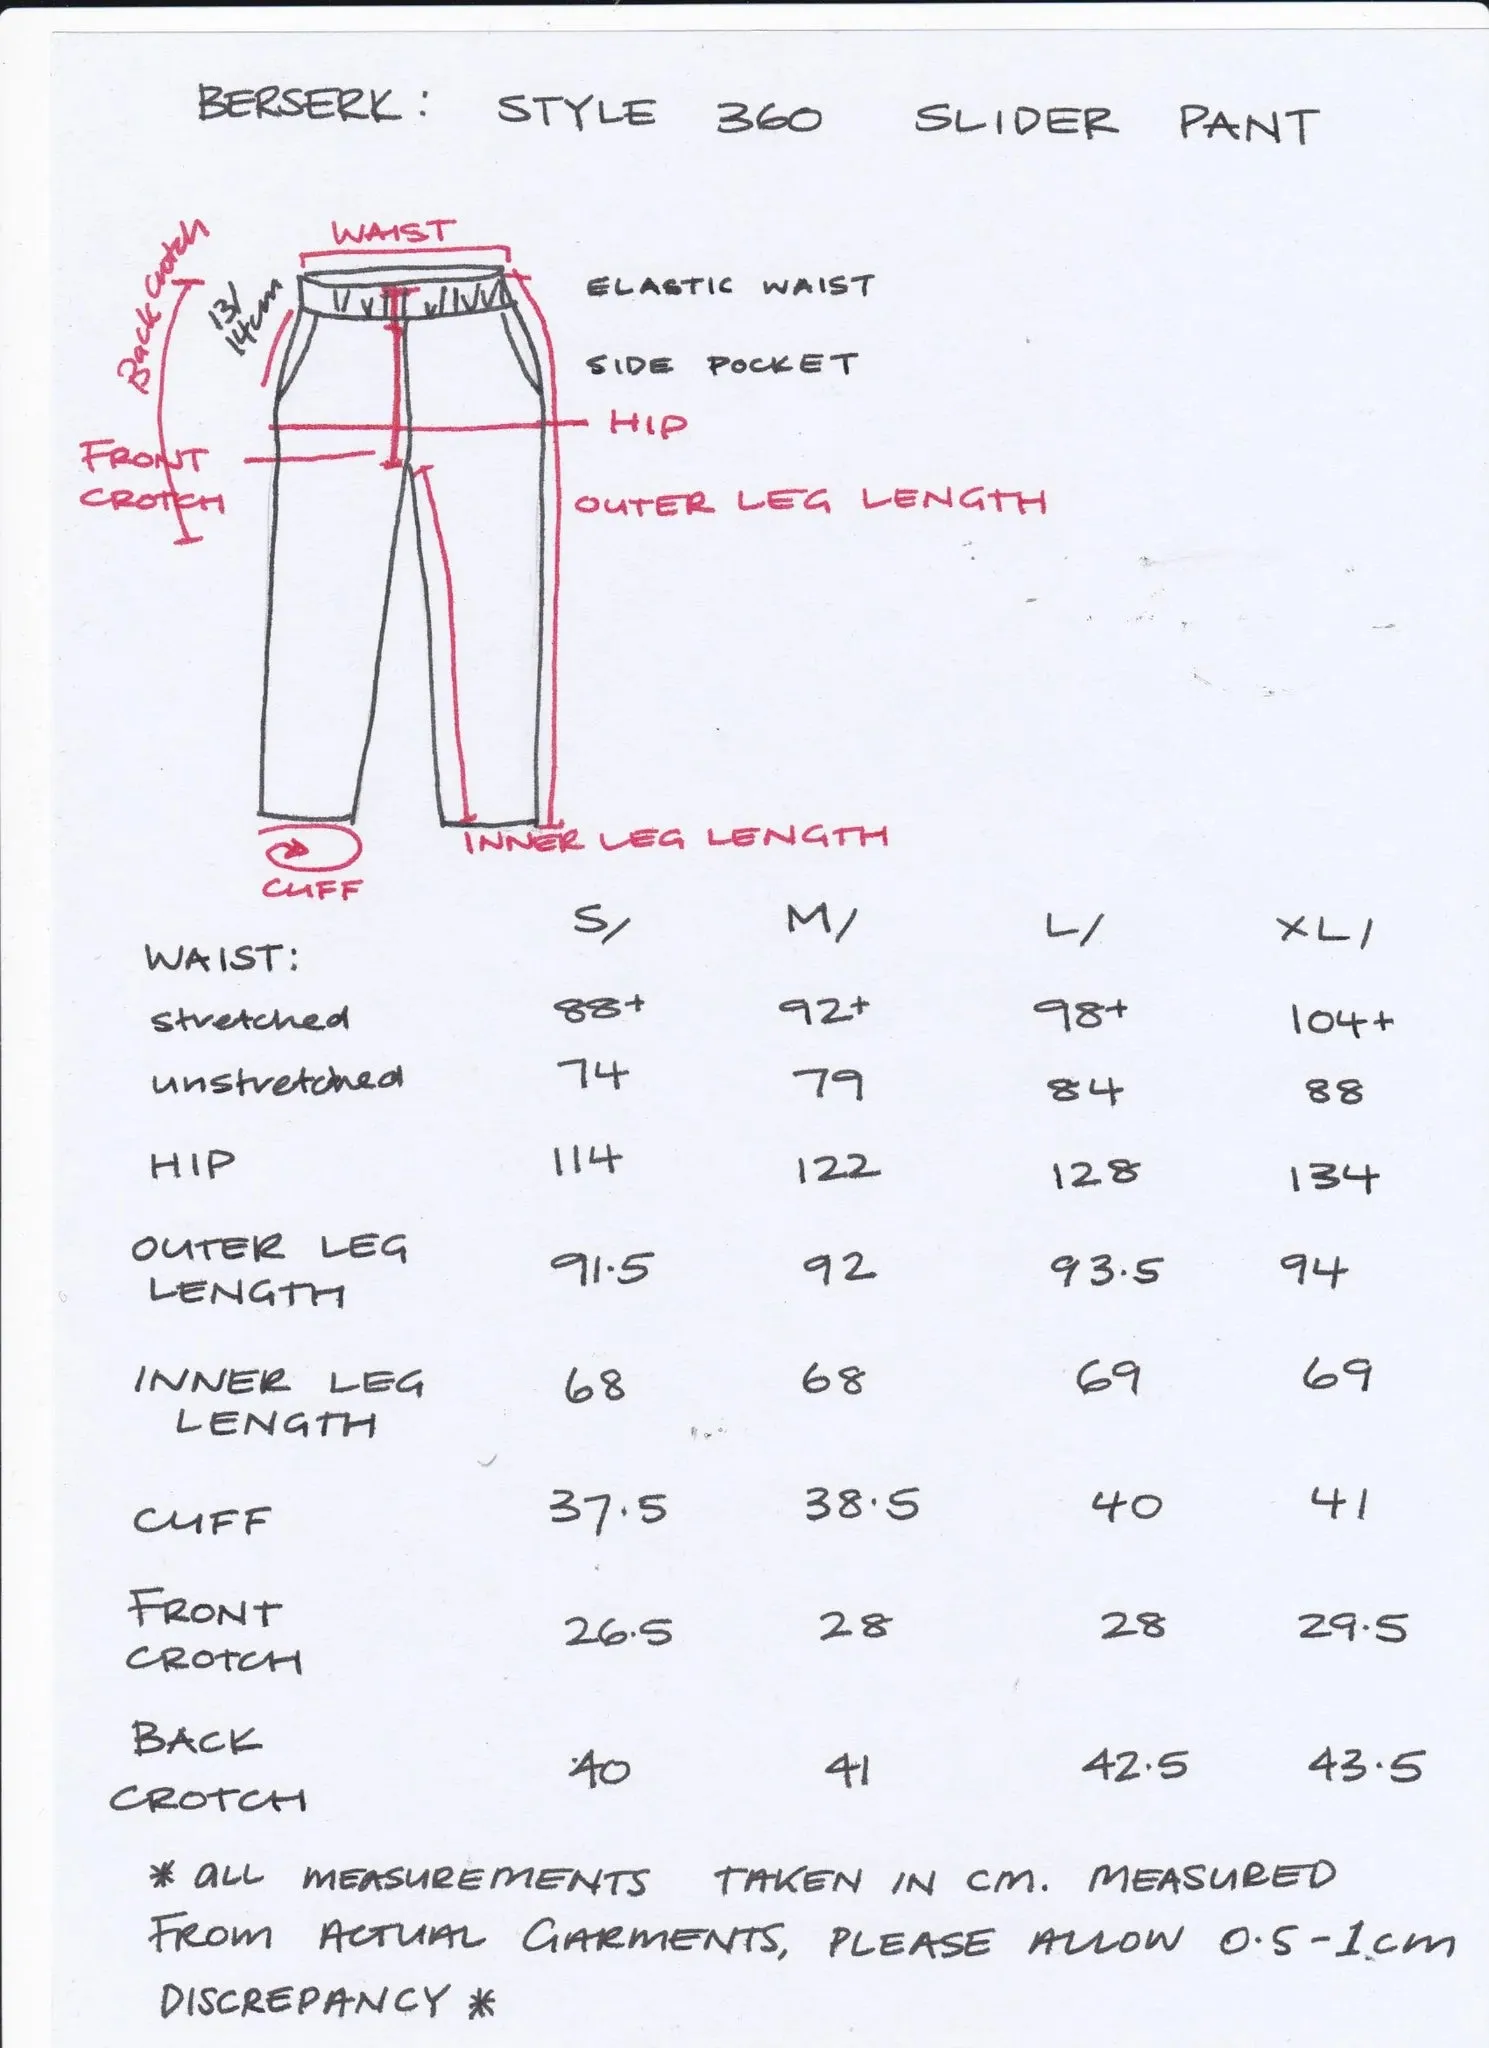 BERSERK: STYLE 360 SLIDER PANT
WAIST
Back Crotch
13/
14cm
ELASTIC WAIST
SIDE POCKET
HIP
FRONT
CROTCH
OUTER LEG LENGTH
INNER LEG LENGTH
CUFF
S/ M/ L/ XL/
WAIST:
stretched 88+ 92+ 98+ 104+
unstretched 74 79 84 88
HIP 114 122 128 134
OUTER LEG
LENGTH 91.5 92 93.5 94
INNER LEG
LENGTH 68 68 69 69
CUFF 37.5 38.5 40 41
FRONT
CROTCH 26.5 28 28 29.5
BACK
CROTCH 40 41 42.5 43.5
* ALL MEASUREMENTS TAKEN IN CM. MEASURED
FROM ACTUAL GARMENTS, PLEASE ALLOW 0.5-1cm
DISCREPANCY *